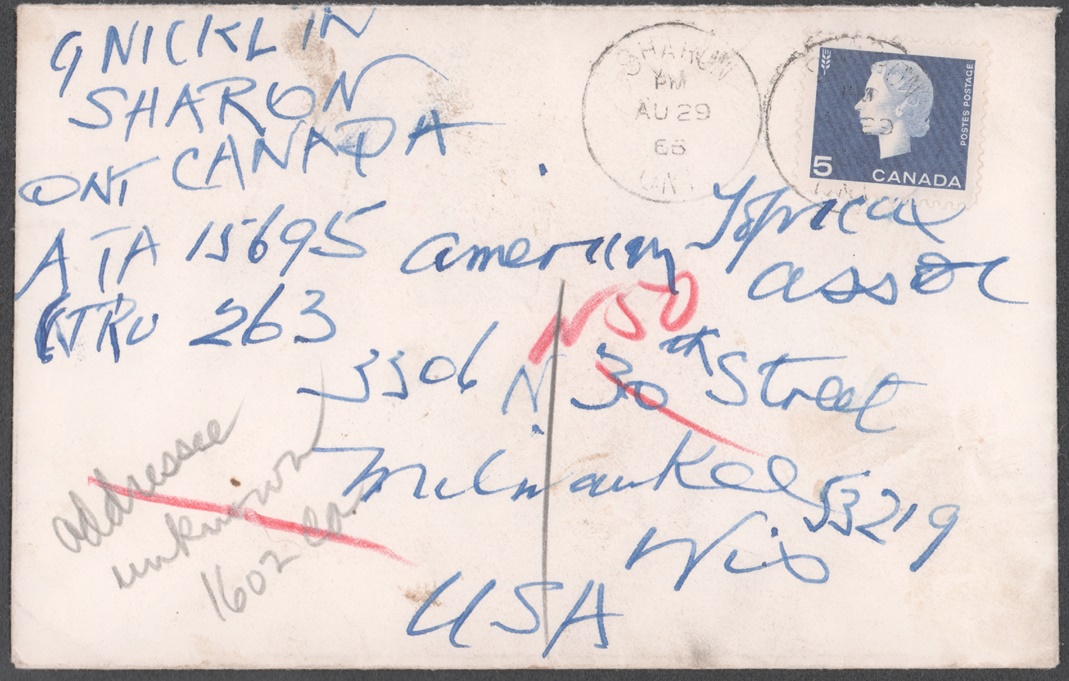 G NICKLIN
SHARON
ONT CANADA
ATA 15695
263
SHARON
PM
AU 29
66
ONT
POSTES POSTAGE
5 CANADA
american Topical
assoc
N 50
3306 N 30th Street
Milwaukee 53219
Wis
USA
addressee
unknown
1602